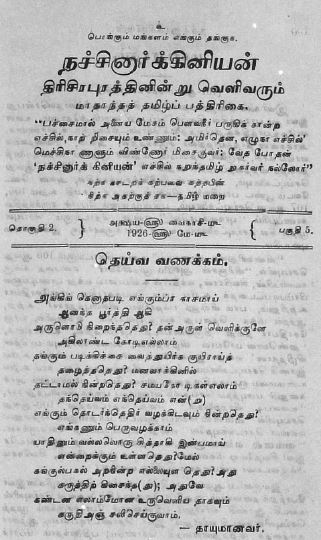 உ
பொங்கும் மங்களம் எங்கும் தங்குக.
நச்சினார்க்கினியன்
திரிசிரபுரத்தினின்று வெளிவரும்
மாதாந்தத் தமிழ்ப் பத்திரிகை.
"பச்சைமால் அனைய மேகம் பௌவநீர் பருகிக் கான்ற
எச்சில், நாற் றிசையும் உண்ணும்: அமிர்தென, எழுநா எச்சில்
மெச்சிநா ணாளும் விண்ணோர் மிசைகுவர்: வேத போதன்
'நச்சினார்க் கினியன்' எச்சில் நறுந்தமிழ் நுகர்வர் நல்லோர்"
கற்க கசடறக் கற்பவை கற்றபின்
நிற்க அதற்குத் தக—தமிழ் மறை
தொகுதி 2.
அக்ஷய-ளு வைகாசி-மீ
1926-ளு மே-மீ
பகுதி 5.
தெய்வ வணக்கம்.
அங்கிங் கெனாதபடி எங்கும்ப்ர காசமாய்
ஆனந்த பூர்த்தி ஆகி
அருளொடு நிறைந்ததெது? தன்அருள் வெளிக்குளே
அகிலாண்ட கோடிஎல்லாம்
தங்கும் படிக்கிச்சை வைத்துயிர்க் குயிராய்த்
தழைத்ததெது? மனவாக்கினில்
தட்டாமல் நின்றதெது? சமயகோ டிகள்எலாம்
தந்தெய்வம் எந்தெய்வம் என்(று)
எங்குந் தொடர்ந்தெதிர் வழக்கிடவும் நின்றதெது?
எங்கணும் பெருவழக்காம்
யாதினும் வல்லவொரு சித்தாகி இன்பமாய்
என்றைக்கும் உள்ளதெது? மேல்
கங்குல்பகல் அறநின்ற எல்லையுள தெது? அது
கருத்திற் கிசைந்த(து); அதுவே
கண்டன எலாம்மோன உருவெளிய தாகவும்
கருதிஅஞ் சலிசெய்குவாம்.
— தாயுமானவர்.